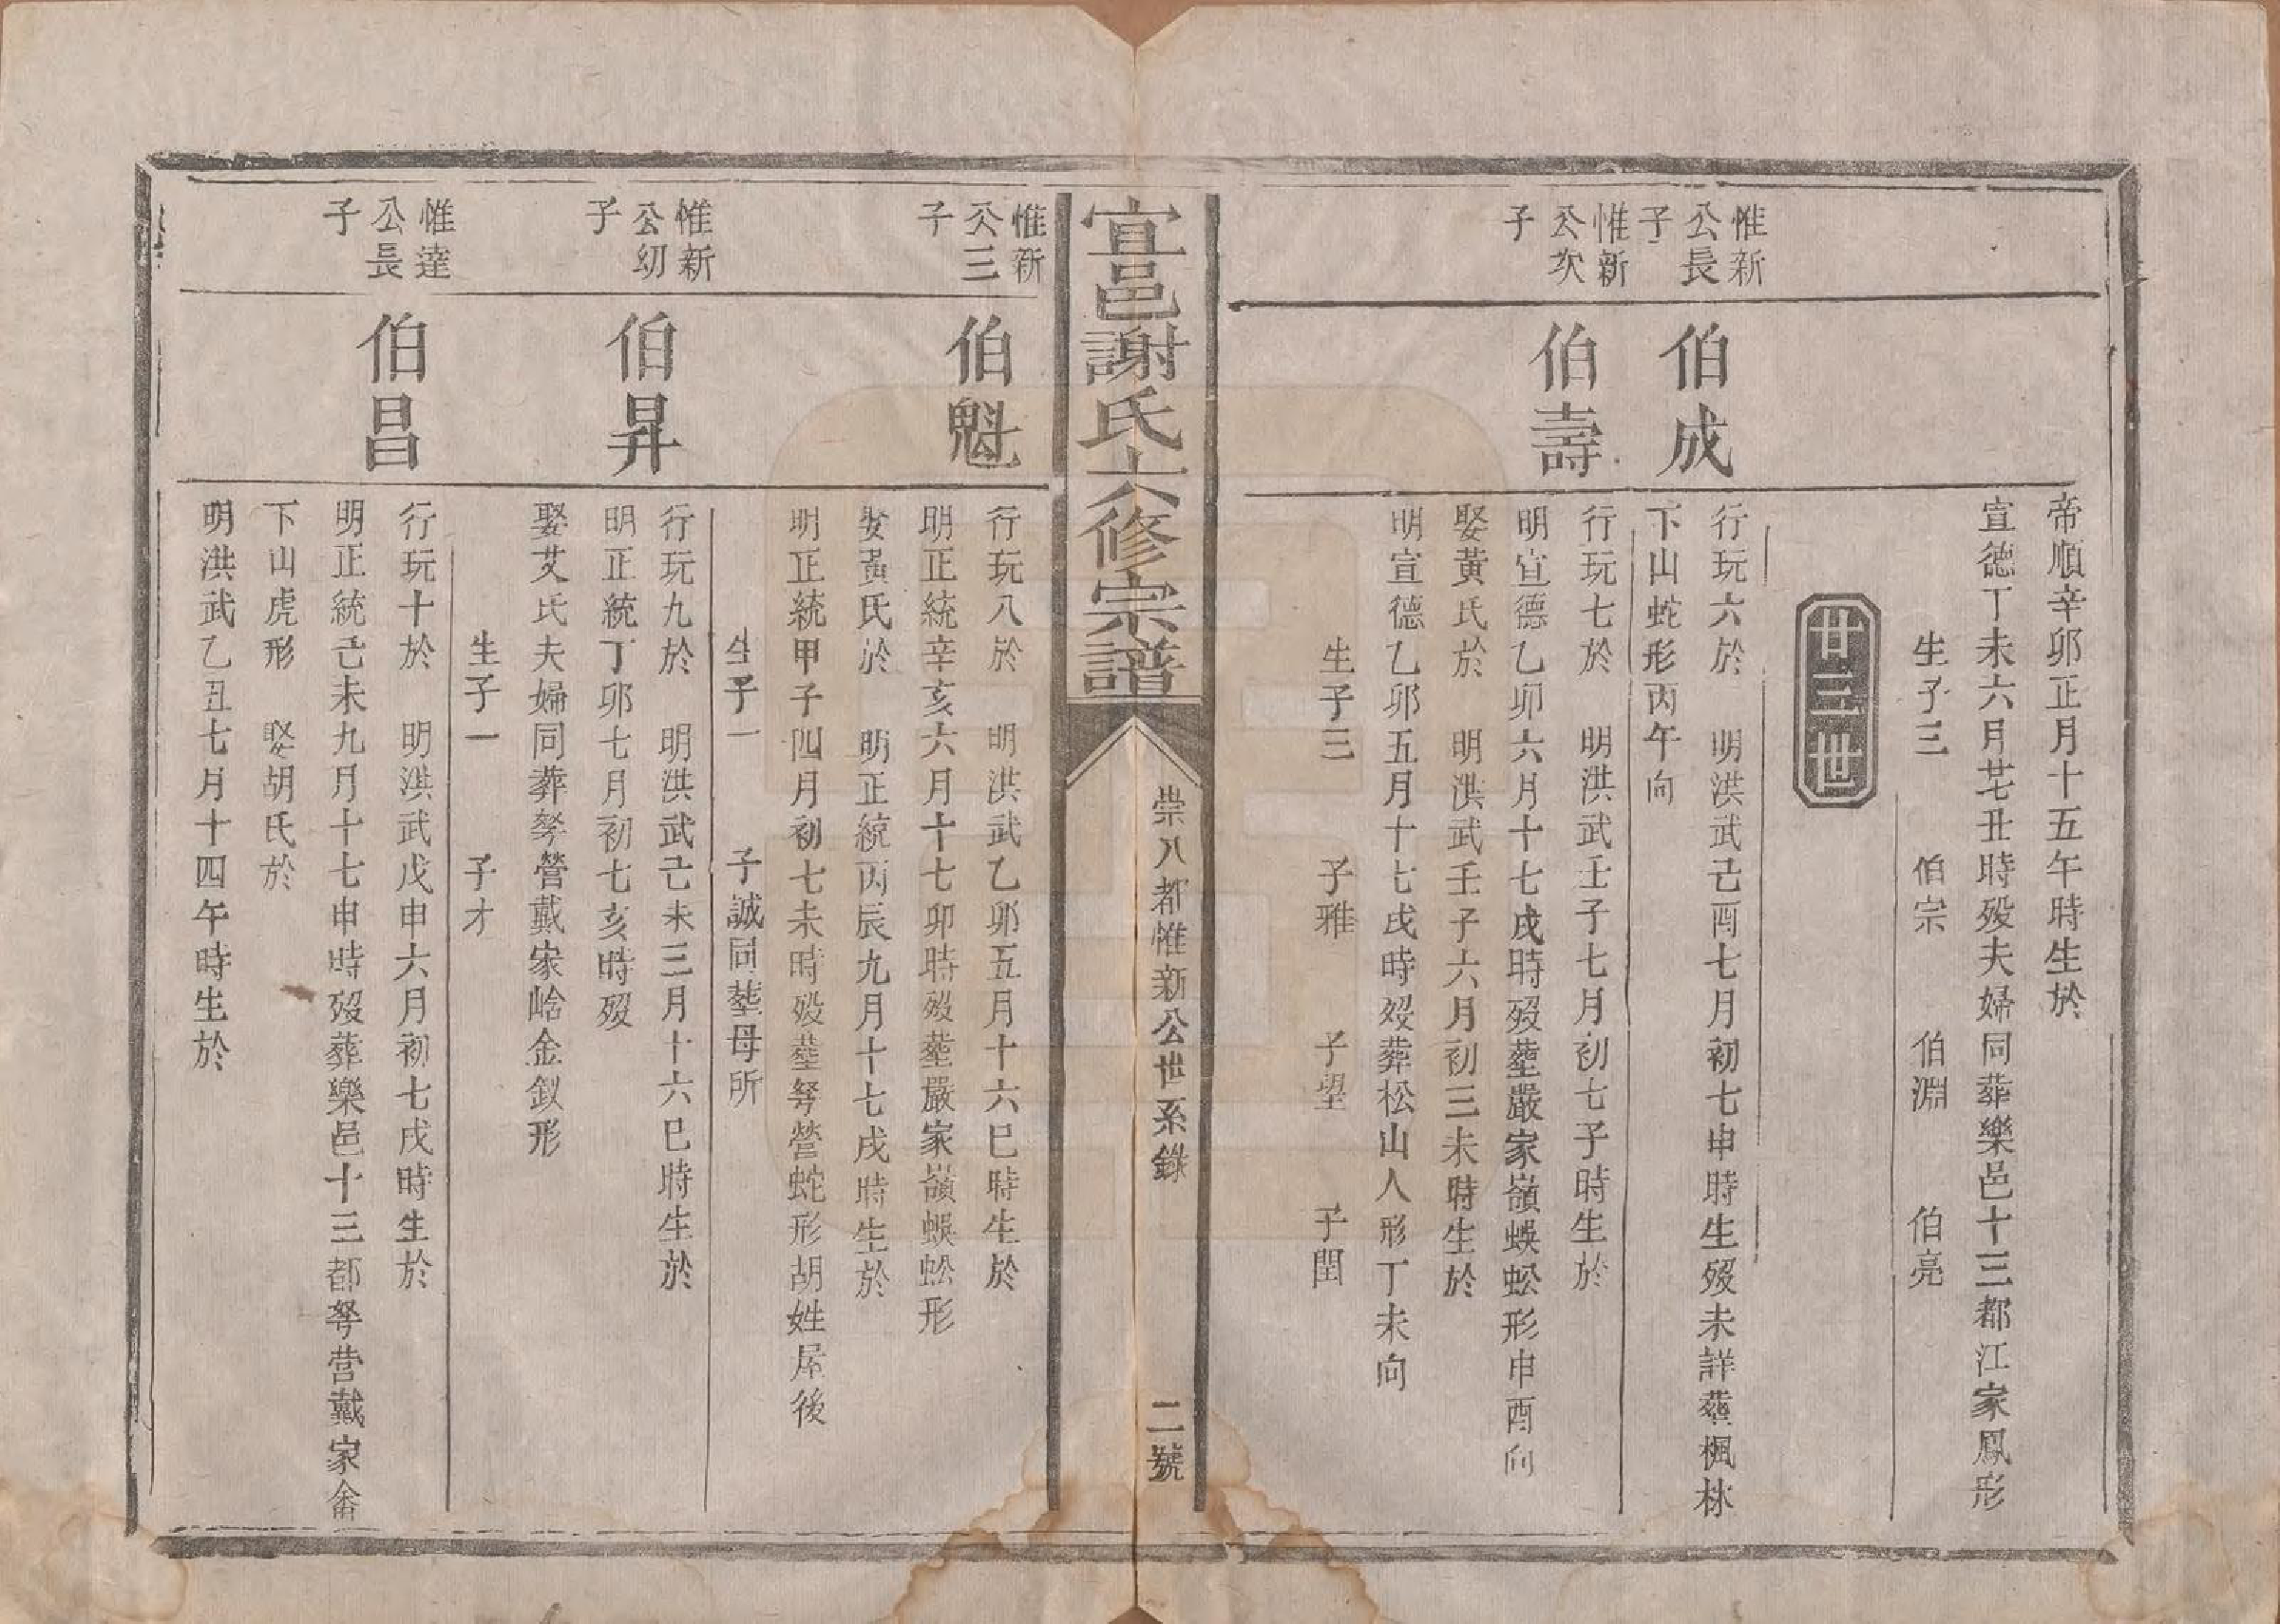 帝順辛卯正月十五午時生於
宣德丁未六月芼丑時殁夫婦同葬樂邑十三都江家鳳形
生子三 伯宗 伯淵 伯亮
廿三世
惟新公長子
伯成
行玩六於 明洪武己酉七月初七申時生殁未詳葬楓林
下山蛇形丙午向
惟新公次子
伯壽
行玩七於 明洪武壬子七月初七子時生於
明宣德乙卯六月十七戌時殁塟嚴家嶺蜈蚣形申酉向
娶黃氏於 明洪武壬子六月初三未時生於
明宣德乙卯五月十七戌時殁葬松山人形丁未向
生子三 子雅 子望 子閏
宜邑謝氏六修宗譜
崇八都惟新公世系錄
二號
惟新公三子
伯魁
行玩八於 明洪武乙卯五月十六巳時生於
明正統辛亥六月十七卯時殁塟嚴家嶺蜈蚣形
娶黃氏於 明正統丙辰九月十七戌時生於
明正統甲子四月初七未時殁塟努營蛇形胡姓屋後
生子一 子誠同塟母所
惟新公幼子
伯昇
行玩九於 明洪武己未三月十六巳時生於
明正統丁卯七月初七亥時殁
娶艾氏夫婦同葬努營戴家峆金釵形
生子一 子才
惟達公長子
伯昌
行玩十於 明洪武戊申六月初七戌時生於
明正統己未九月十七申時殁葬樂邑十三都努营戴家畲
下山虎形 娶胡氏於
明洪武乙丑七月十四午時生於